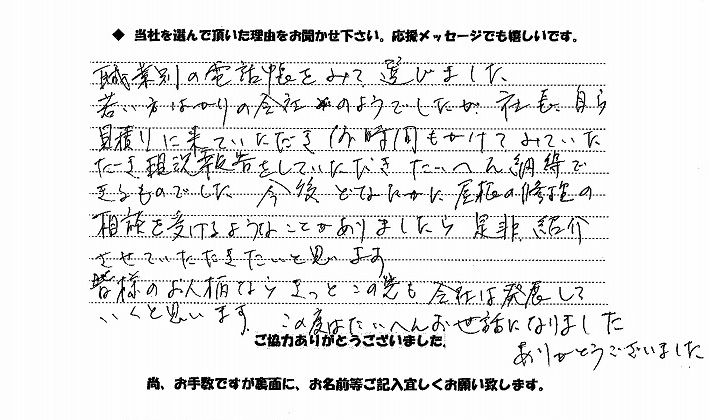 ◆ 当社を選んで頂いた理由をお聞かせ下さい。応援メッセージでも嬉しいです。
職業別の電話帳をみて選びました
若い方ばかりの会社のようでしたが 社長自ら
見積りに来ていただき 何時間もかけてみていた
だき 報告をしていただき たいへん納得で
きるものでした 今後どなたかに屋根の修理の
相談を受けるようなことがありましたら 是非 紹介
させていただきたいと思います
皆様のお人柄なら きっとこの先も 会社は発展して
いくと思います この度はたいへんお世話になりました
ご協力ありがとうございました。
ありがとうございました
尚、お手数ですが裏面に、お名前等ご記入宜しくお願い致します。